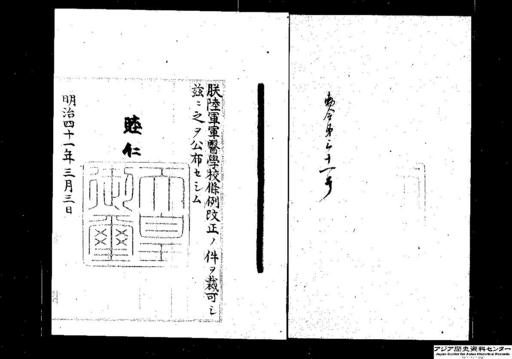 勅令第二十一号
朕陸軍軍醫學校條例改正ノ件ヲ裁可シ
茲ニ之ヲ公布セシム
睦仁
天皇御璽
明治四十一年三月三日
アジア歴史資料センター
Japan Center for Asian Historical Records